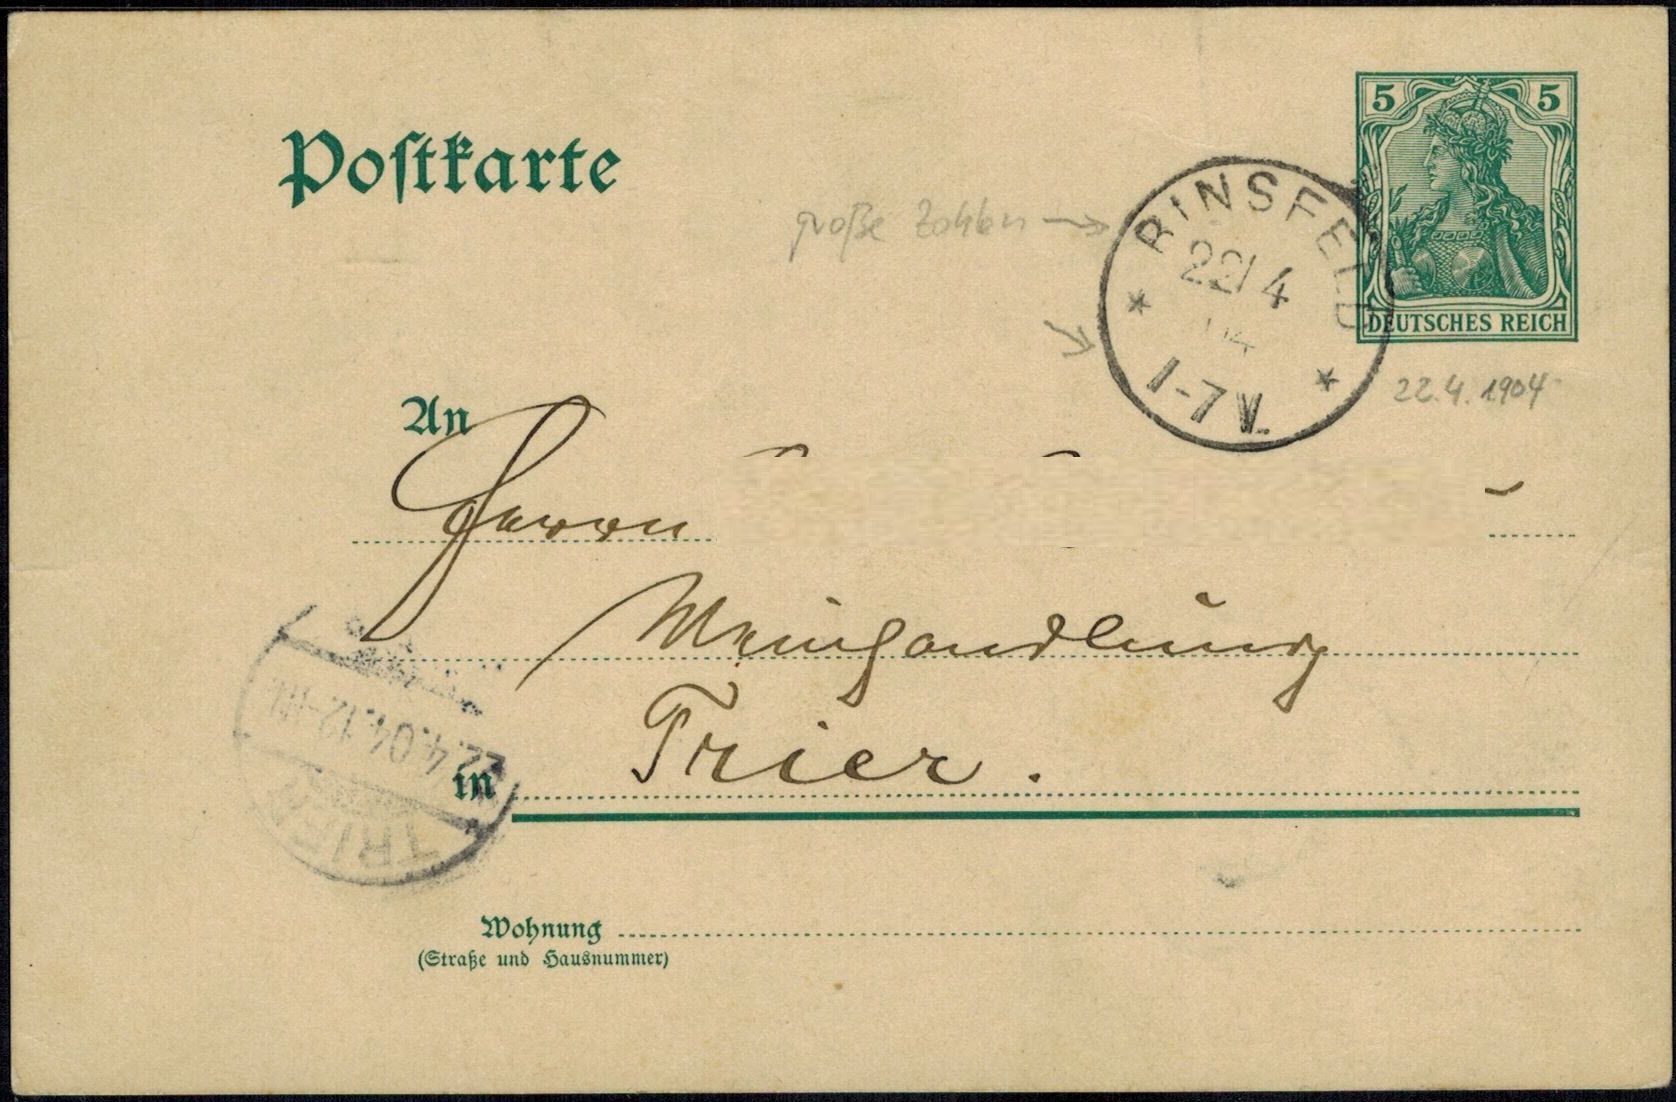 5 5
Postkarte
DEUTSCHES REICH
große Zahlen →
RINSFELD
22/4
04
1-7 V.
22.4.1904
An
Herrn
Weinhandlung
in Trier.
TRIER
22.4.04.12-1N.
Wohnung
(Straße und Hausnummer)